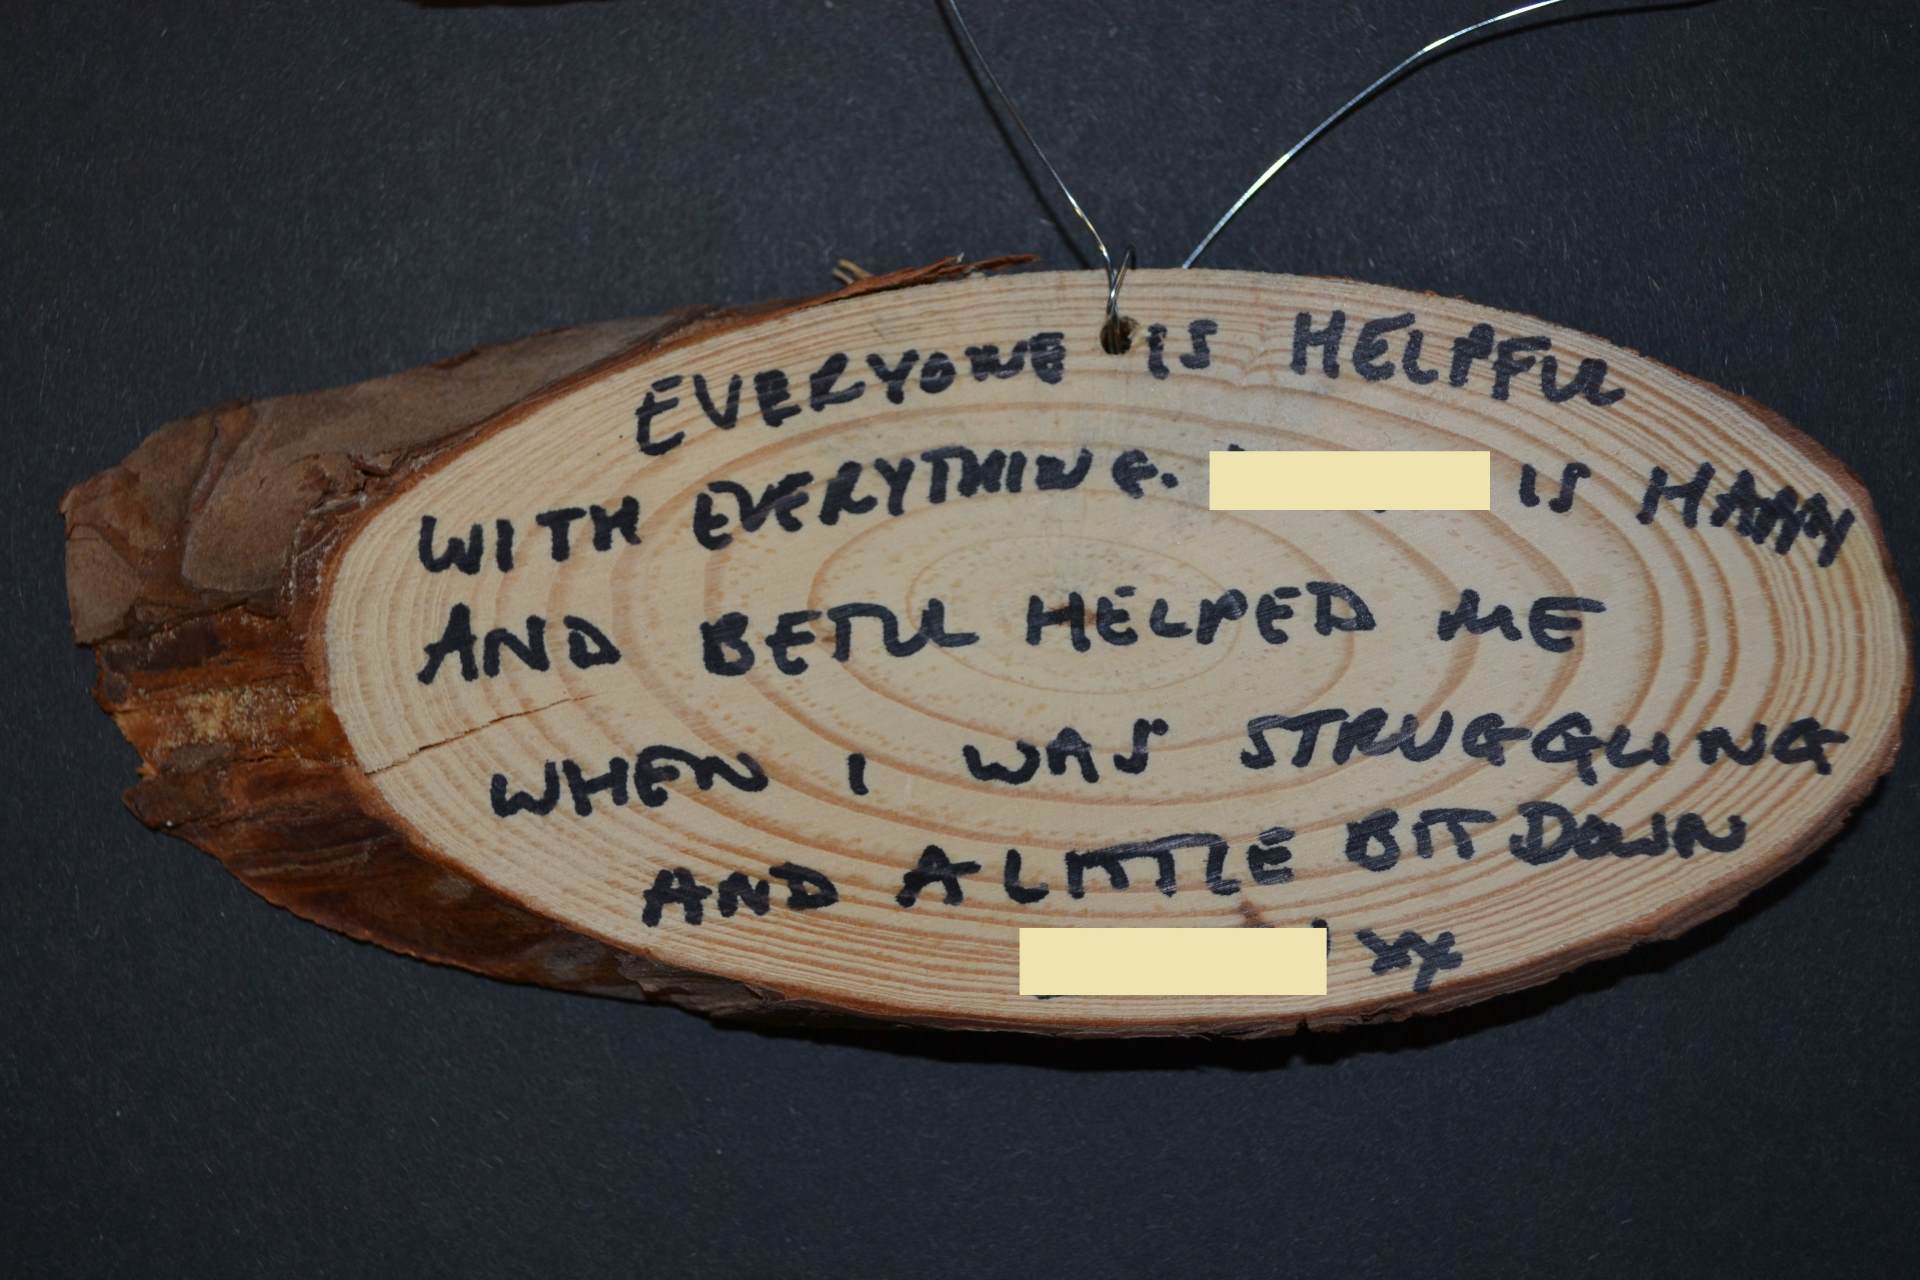 EVERYONE IS HELPFUL
WITH EVERYTHING. IS HAPPY
AND BETUL HELPED ME
WHEN I WAS STRUGGLING
AND A LITTLE BIT DOWN
xx